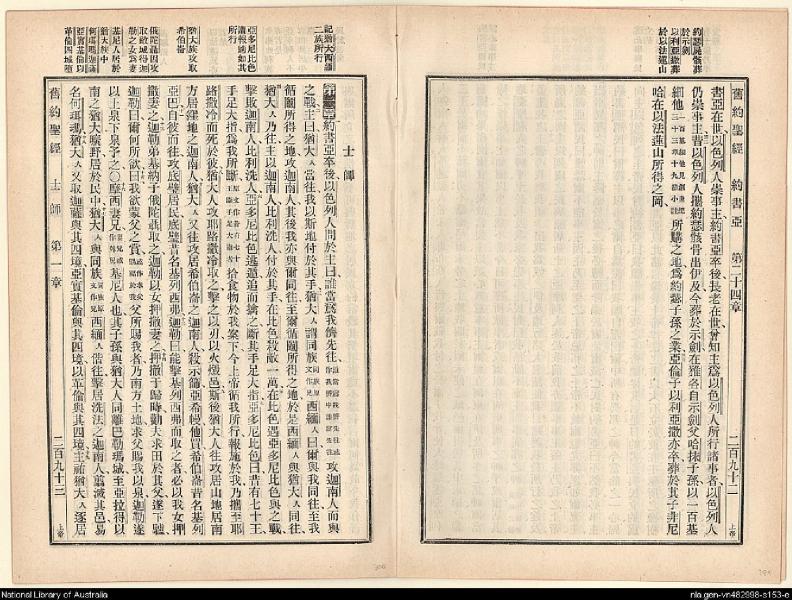 約瑟骸骨葬
於示劍
以利亞撒葬
於以法蓮山
舊約聖經 約書亞 第二十四章 二百九十二 上帝
書亞在世以色列人崇事主約書亞卒後長老在世曾知主爲以色列人所行諸事者以色列人
仍崇事主昔以色列人攜約瑟骸骨出伊及今葬於示劍在雅各自示劍父哈抹子孫以一百基
細他 所購之地爲約瑟子孫之業亞倫子以利亞撒亦卒葬於其子非尼
哈在以法蓮山所得之岡
記猶大西緬
二族所行
亞多尼比色
所行
猶大族攻取
希伯崙
俄陀聶因攻
取底城得迦
勒之女爲妻
基尼人居於
猶大族中
士師
約書亞卒後以色列人問於主曰誰當爲我儕先往 攻迦南人而與
之戰主曰猶大 當往我以斯地付於其手猶大 謂同族 西緬 曰爾與我同往至我
循鬮所得之地攻迦南人其後我亦與爾同往至爾循鬮所得之地於是西緬 與猶大 同往
猶大 乃往主以迦南人比利洗人付於其手在比色殺敵一萬在比色遇亞多尼比色與之戰
擊敗迦南人比利洗人亞多尼比色逃遁追而擒之斷其手足大指亞多尼比色曰昔有七十王
手足大指爲我所斷 拾食物於我案下今上帝循我所行報施於我乃攜至耶
路撒冷而死於彼猶大人攻耶路撒冷取之擊之以刃以火燬邑斯後猶大人往攻居山地居南
方居窪地之迦南人猶大 又往攻居希伯崙之迦南人殺示篩亞希幔他買希伯崙昔名基列
亞巴自彼而往攻底壁居民底壁昔名基列西弗迦勒曰能擊基列西弗而取之者必以我女押
撒妻之迦勒弟基納子俄陀聶取之迦勒以女押撒妻之押撒于歸時勸夫求田於其父遂下驢
迦勒曰爾何所欲曰我欲蒙父之賞 父所賜我者乃南方土地求父賜我以泉迦勒遂
以上泉下泉予之〇摩西妻兄 基尼人也其子孫與猶大人同離巴勒瑪城至亞拉得以
南之猶大曠野居於民中猶大 與同族 西緬 偕往擊居洗法之迦南人翦滅其邑易
名何珥瑪猶大 又取迦薩與其四境亞實基倫與其四境以革倫與其四境主祐猶大 逐居
舊約聖經 士師 第一章 二百九十三 上帝
National Library of Australia
nla.gen-vn482998-s153-e